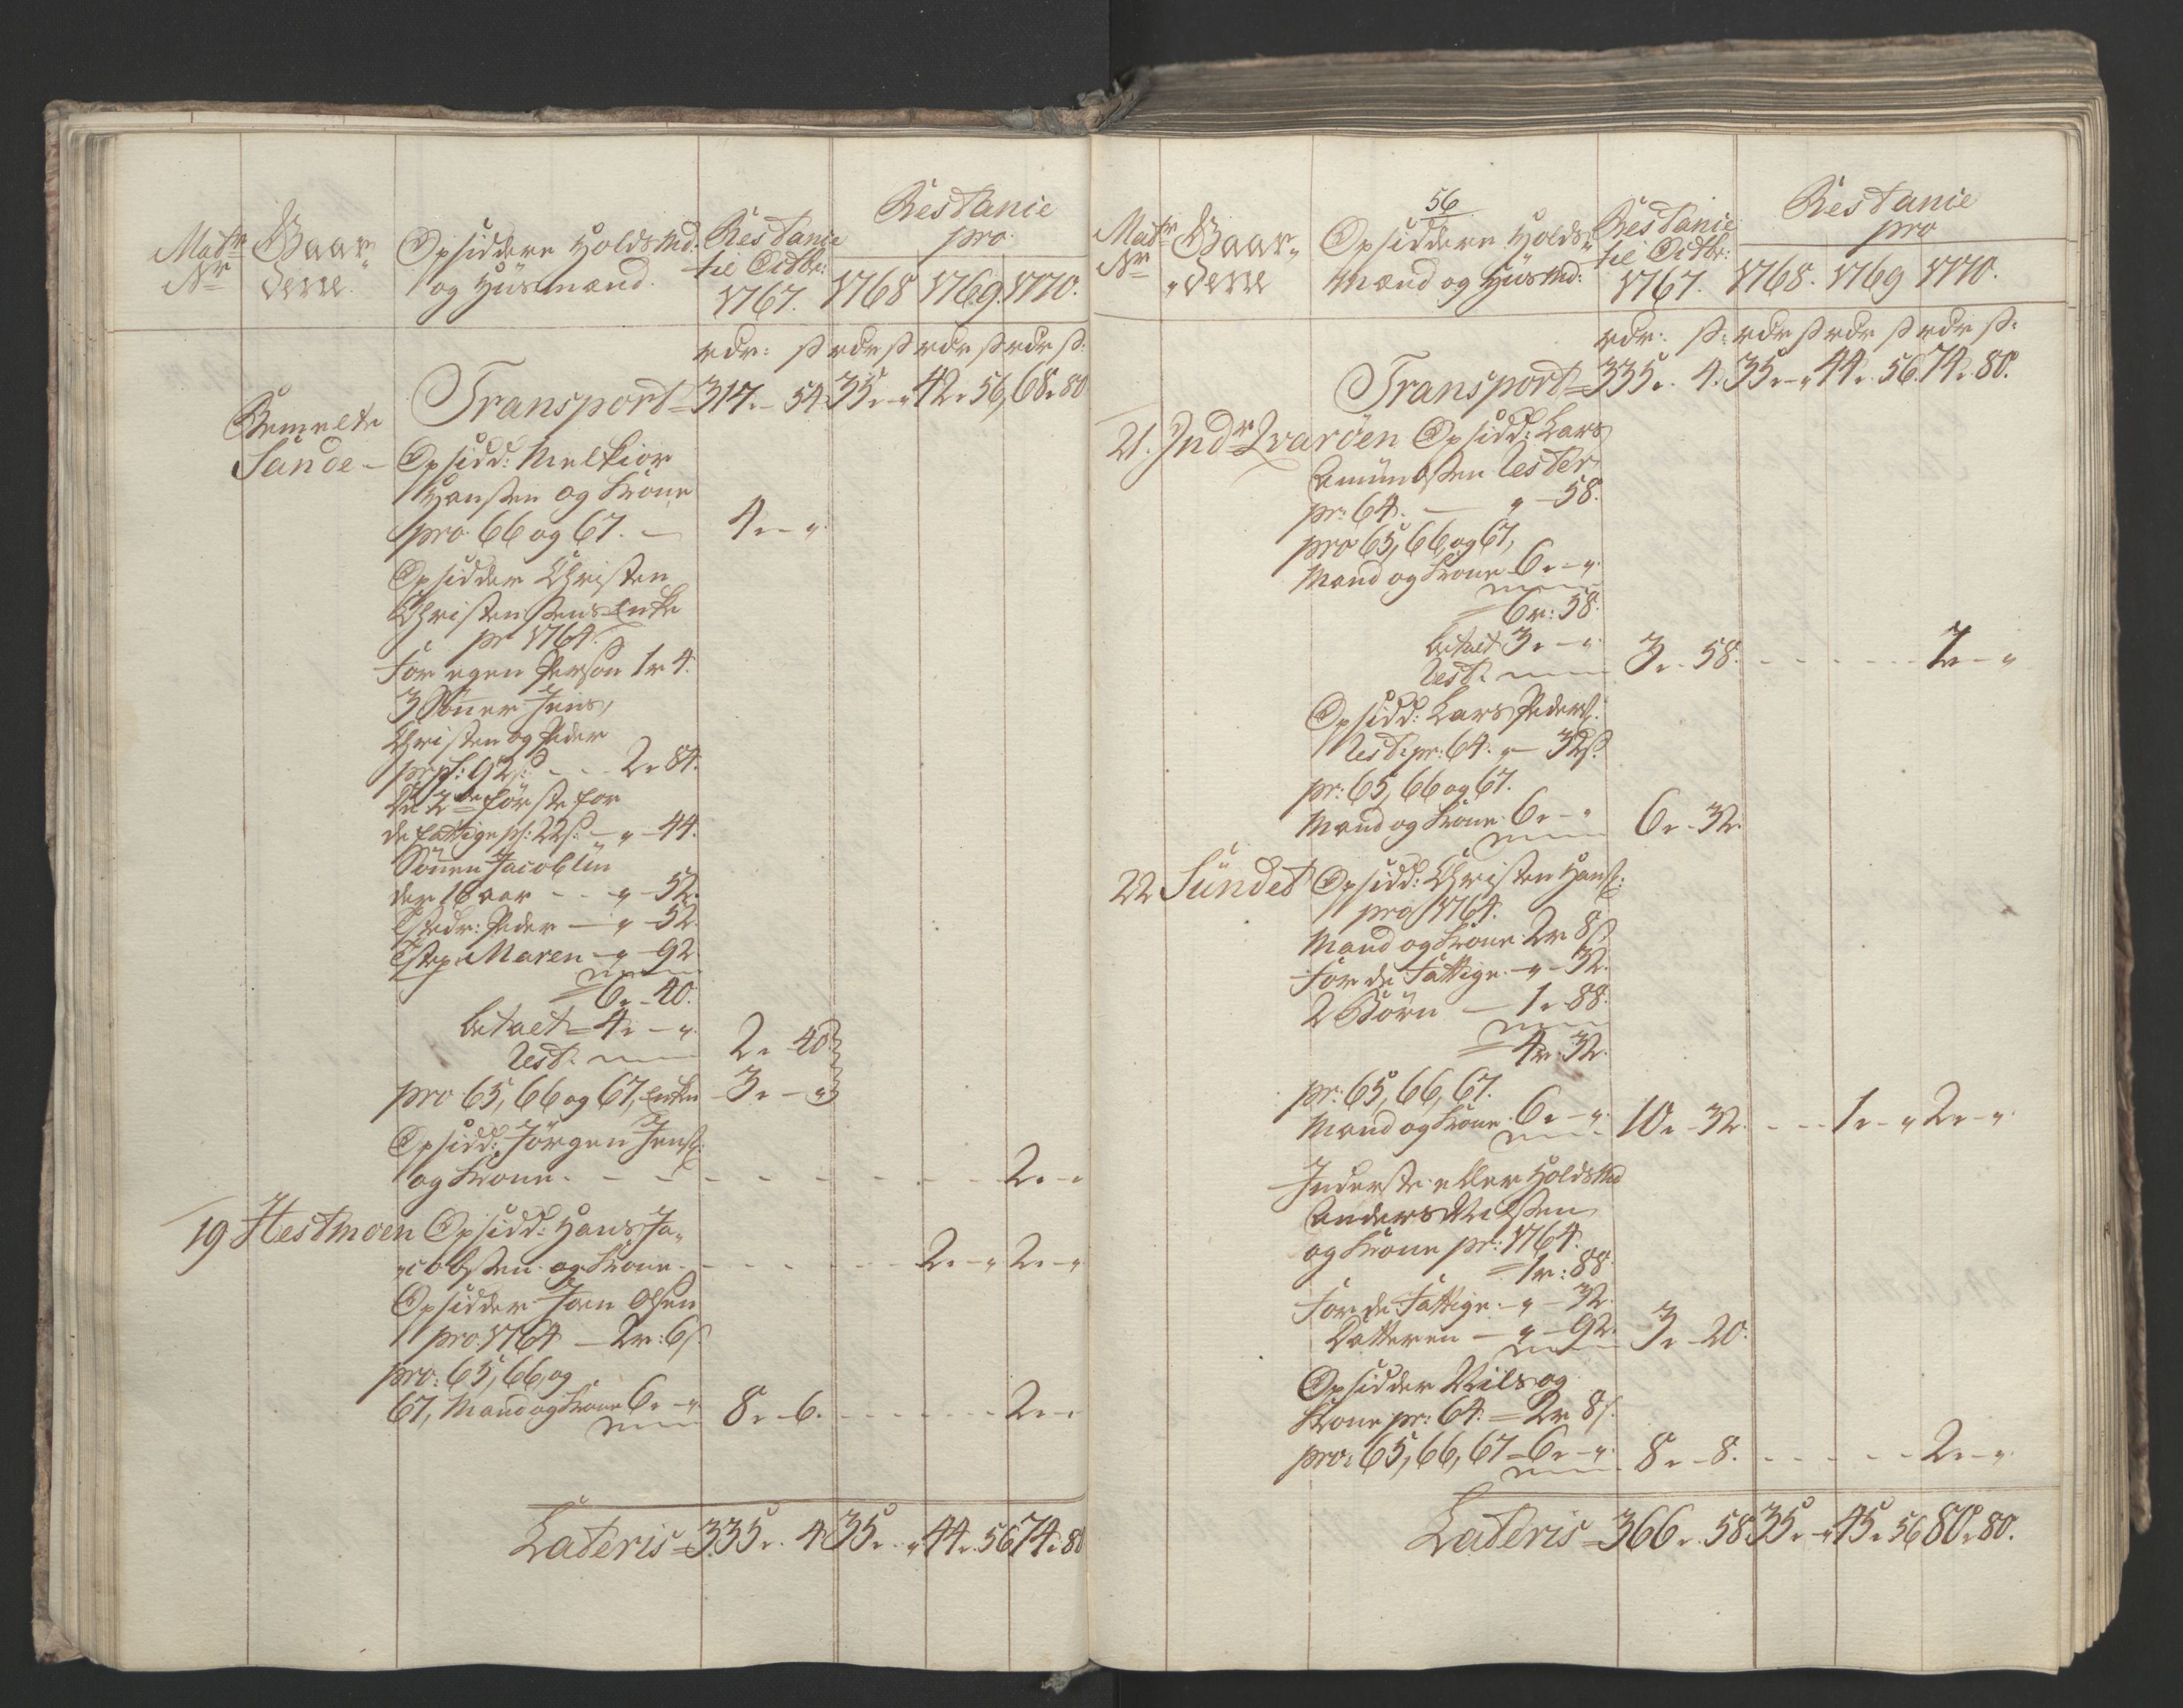 Matr Nr
Gaar„
derne
Opsiddere Holdsmd:
og Huusmænd.
Restance
til Octbr:
1767.
Restance
pro
1768 1769. 1770.
rdr: s rdr s rdr s rdr s:
Transport = 317„ - 54. 35„ - „ 42„ 56, 68„ 80
Bemelte
Sande -
Opsidd: Melkior
Hansen og Kone
pro 66 og 67. - 4„ - „
Opsidder Christen
Christensens Enke
pr 1764.
For egen Person 1r 4.
3 Sönner Jens,
Christen og Peder
pr ps: 92s: - - 2„ 84.
De 2de förste for
de fattige ps: 22s: - „ - 44.
Sönnen Jacob un
der 16 aar - - „ - 52.
Peder - „ - 52
Maren - „ - 92
= 6„ - 40.
betalt = 4„ - „
Rest. 2„ - 40
pro 65, 66 og 67, Enken - 3„ - „
Opsidd: Jörgen Jens:
og Kone - - - - - - 2„ - „
19 Hestmoen Opsidd: Hans Ja„
„cobsen og Kone - - - - 2„ - „ 2„ - „
Opsidder Joen Olsen
pro 1764 - 2r: 6s
pro: 65, 66, og
67, Mand og Kone 6„ - „ 8„ - 6. - - - - 2„ - „
Lateris = 335„ - 4 35„ - „ 44„ 56 74„ 80
56
Matr Nr
Gaar„
„derne
Opsiddere Holds„
mænd og Huusmd:
Restance
til Octbr:
1767.
Restance
pro
1768. 1769 1770.
rdr: s: rdr s rdr s rdr s:
Transport = 335„ - 4. 35„ - „ 44„ 56. 74„ 80.
21. Indr Qvaröen Opsidd: Lars
Amundsen Rester
pr: 64. - „ - 58.
pro 65, 66, og 67,
Mand og Kone 6„ - „
= 6r: 58.
betalt 3„ - „
Rest. 3„ - 58. - - - - 2„ - „
Opsidd: Lars Peders:
Rest: pr: 64. „ - 32s
pr: 65, 66 og 67.
Mand og Kone 6„ - „ 6„ - 32.
22 Sundet Opsidd: Christen Hans:
pro 1764.
Mand og Kone 2r 8s
For de Fattige - „ - 32.
2 Börn - 1„ 88.
= 4r: 32.
pr: 65, 66, 67.
Mand og Kone 6„ - „ 10„ - 32. - - - 1„ - „ 2„ - „
Inderste eller Holdsmd
Anders Nilsen
og Kone pr: 1764.
= 1r: 88.
For de Fattige - „ - 32.
Datteren - „ - 92. 3„ - 20.
Opsidder Nils og
Kone pr: 64. = 2r 8s.
pro: 65, 66, 67 = 6„ - „ 8„ - 8. - - - - 2„ - „
Lateris = 366„ - 58. 35„ - „ 45„ 56 80„ 80.